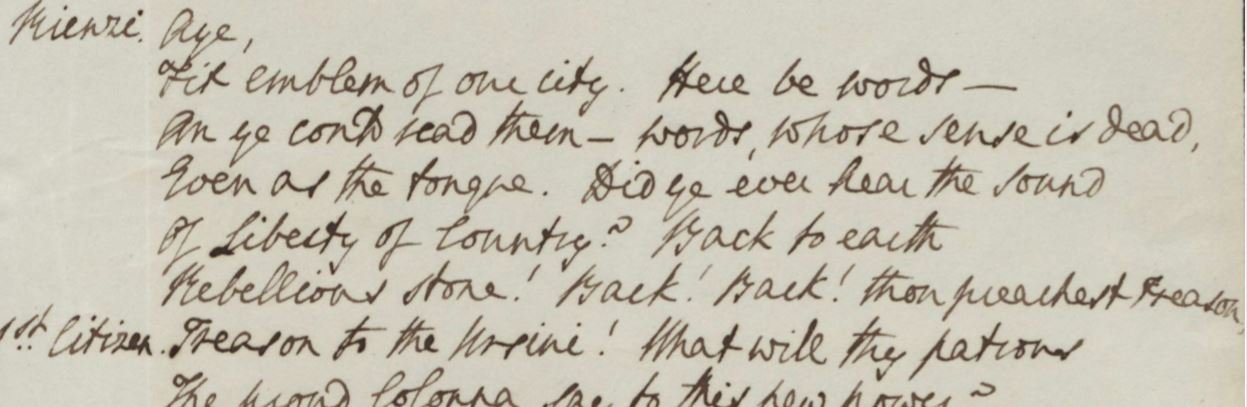 Rienzi. Aye,
Fit emblem of our city. Here be words —
An ye could read them — words, whose sense is dead,
Even as the tongue. Did ye ever hear the sound
Of Liberty of Country? Back to earth
Rebellious stone! Back! Back! thou preachest Treason,
1st Citizen. Treason to the Ursini! What will thy patrons
The proud Colonna say to this new power?